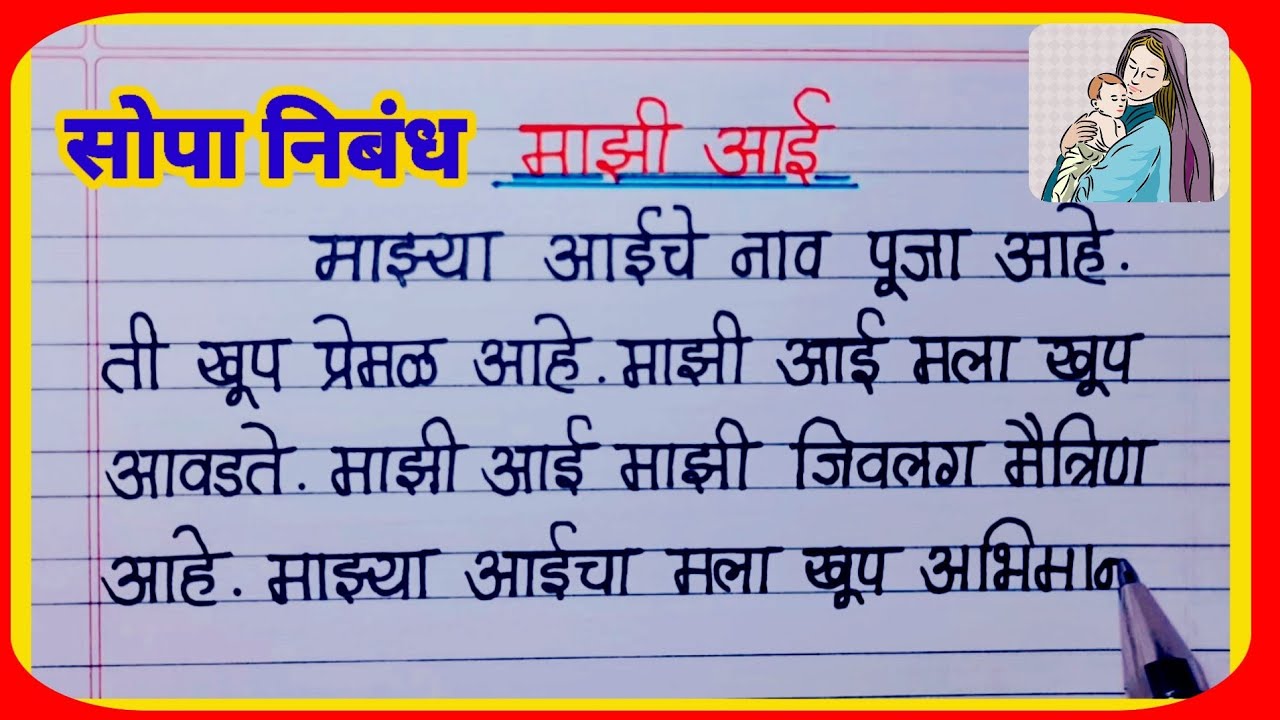 सोपा निबंध माझी आई
माझ्या आईचे नाव पूजा आहे.
ती खूप प्रेमळ आहे. माझी आई मला खूप
आवडते. माझी आई माझी जिवलग मैत्रिण
आहे. माझ्या आईचा मला खूप अभिमान